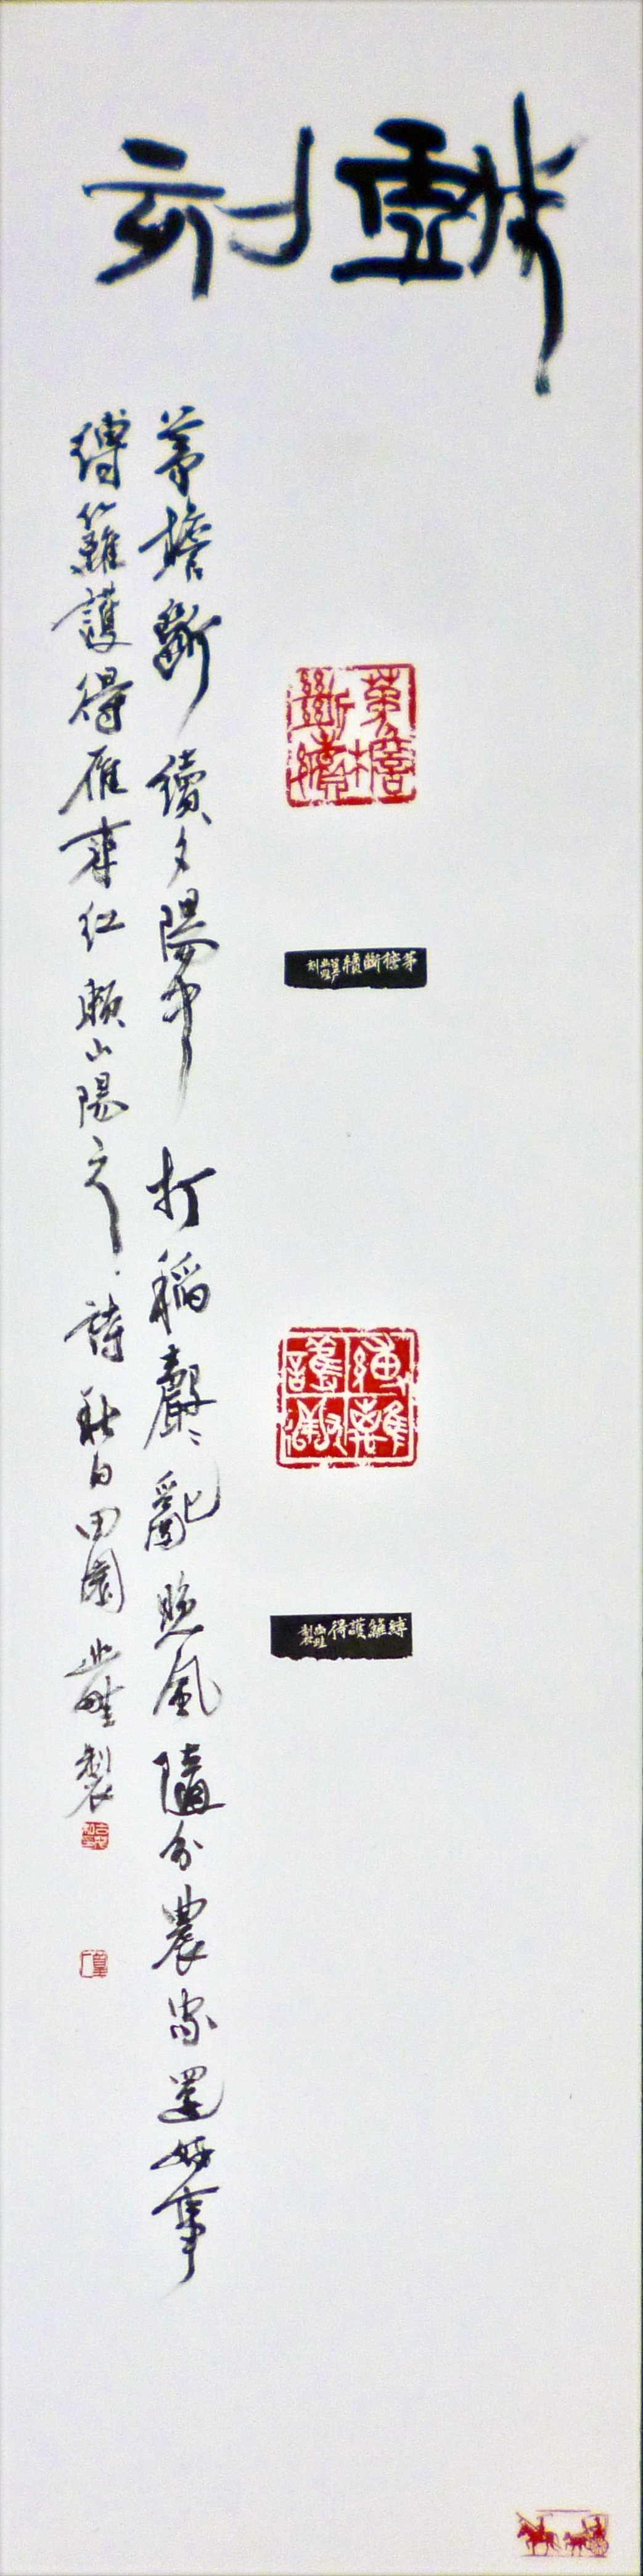 戲刻
茅檐斷續
茅檐斷續
縛籬護得
縛籬護得
茅檐斷續夕陽中打稻聲々亂晚風隨分農家還好事
縛籬護得雁来紅 賴山陽之詩 秋日田園 畦製